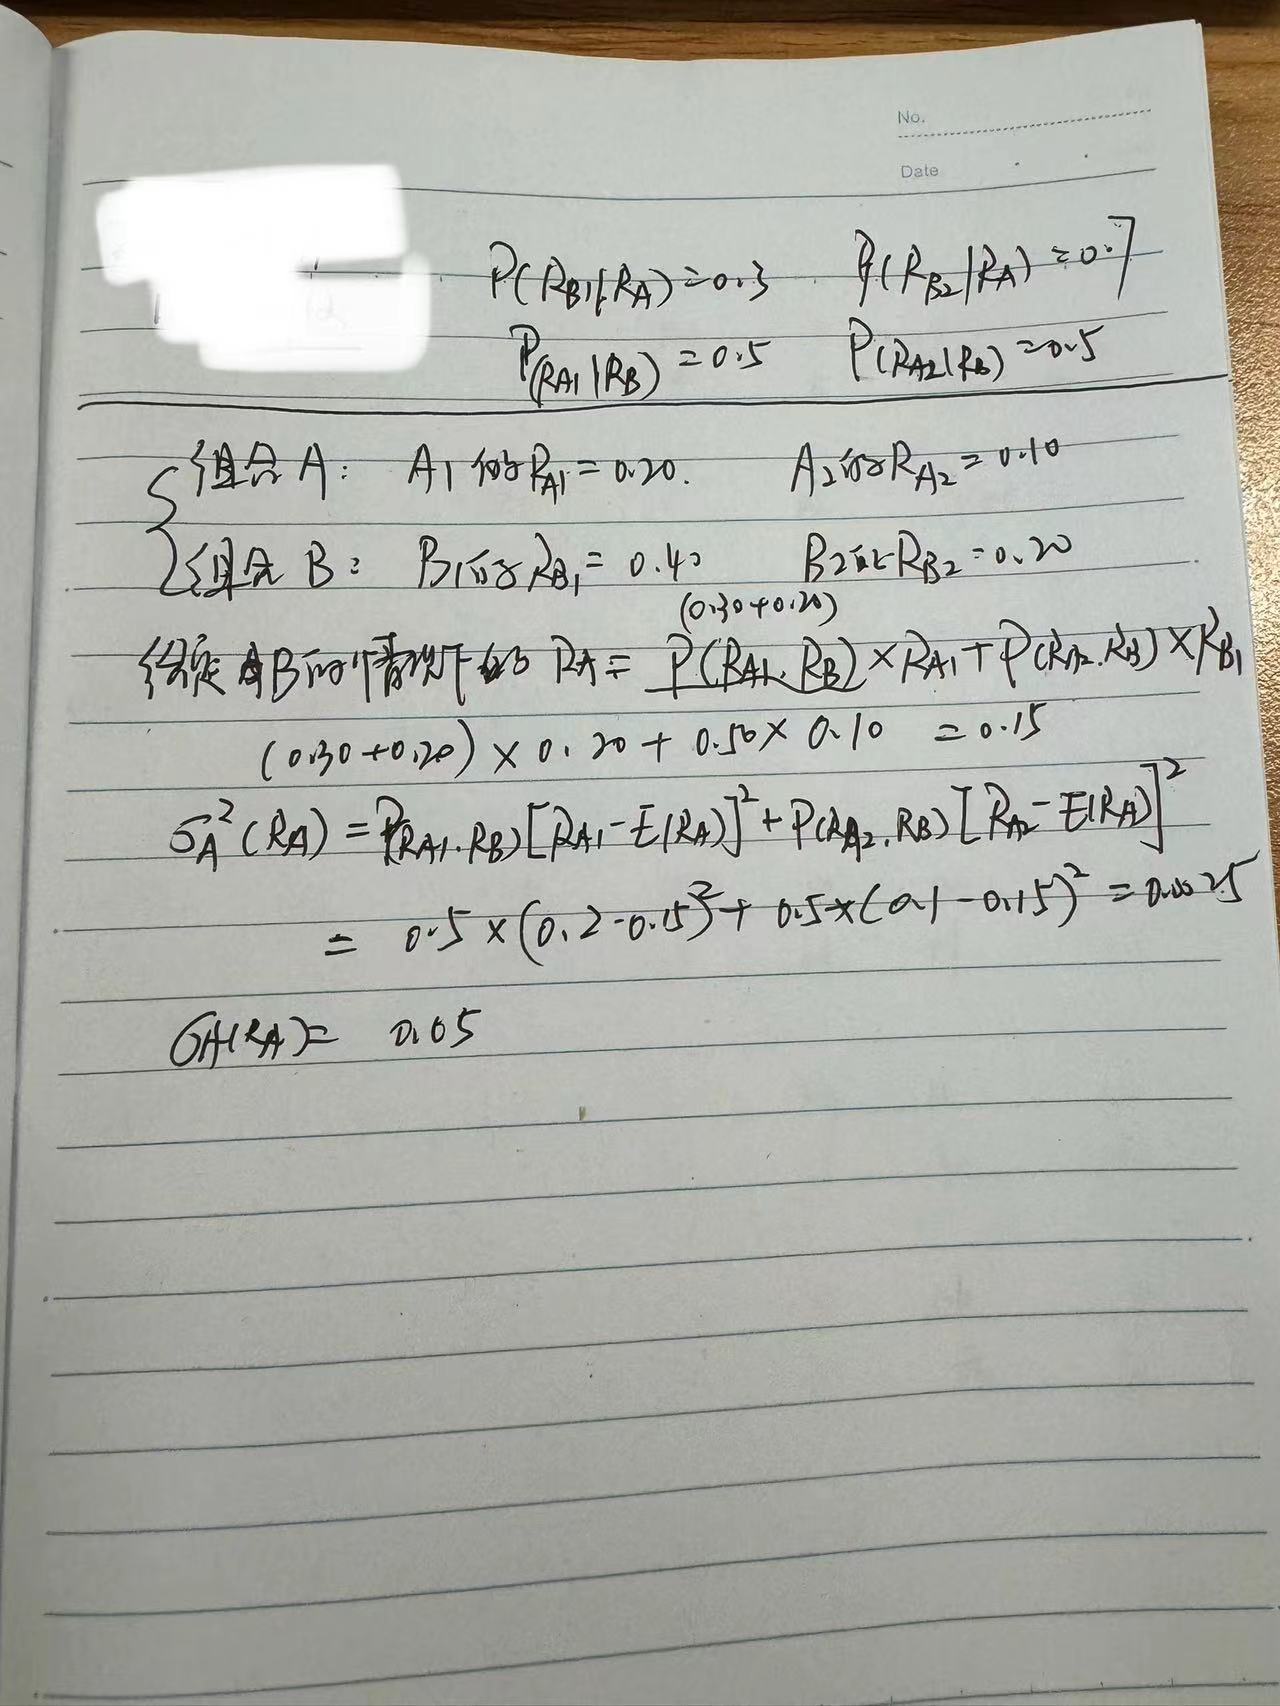 No.
Date
P(RB1|RA)=0.3 P(RB2|RA)=0.7
P(RA1|RB)=0.5 P(RA2|RB)=0.5
组合A: A1的RA1=0.20. A2的RA2=0.10
组合B: B1的RB1=0.40 B2的RB2=0.20
(0.30+0.20)
给定AB的情况下的 RA=P(RA1.RB)×RA1+P(RA2.RB)×RB1
(0.30+0.20)×0.20+0.50×0.10 =0.15
σA²(RA)=P(RA1.RB)[RA1-E(RA)]²+P(RA2.RB)[RA2-E(RA)]²
= 0.5×(0.2-0.15)²+0.5×(0.1-0.15)²=0.0025
σA(RA)= 0.05